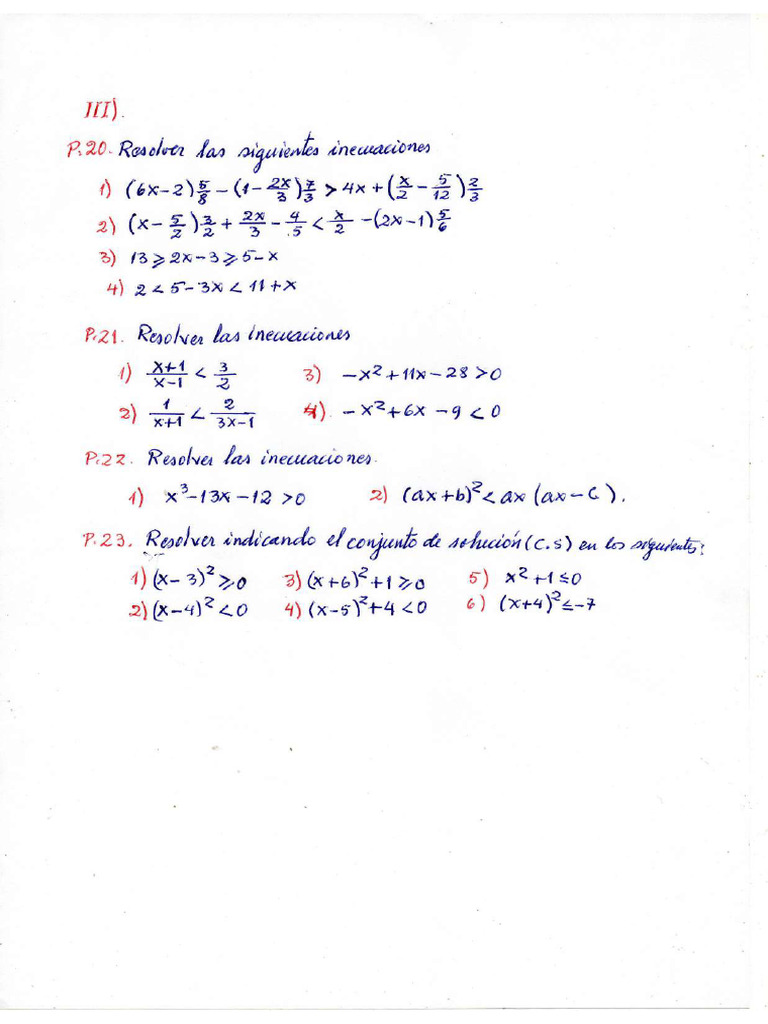 III).
P.20. Resolver las siguientes inecuaciones
1) (6x-2)5/8 - (1 - 2x/3)7/3 > 4x + (x/2 - 5/12)2/3
2) (x - 5/2)3/2 + 2x/3 - 4/5 < x/2 - (2x-1)5/6
3) 13 ≥ 2x-3 ≥ 5-x
4) 2 < 5-3x < 11+x
P.21. Resolver las inecuaciones
1) x+1/x-1 < 3/2 3) -x²+11x-28>0
2) 1/x+1 < 2/3x-1 4). -x²+6x-9<0
P.22. Resolver las inecuaciones.
1) x³-13x-12>0 2) (ax+b)²<ax(ax-c).
P.23. Resolver indicando el conjunto de solución (C.S) en los siguientes:
1) (x-3)²≥0 3) (x+6)²+1≥0 5) x²+1≤0
2) (x-4)²<0 4) (x-5)²+4<0 6) (x+4)²≤-7